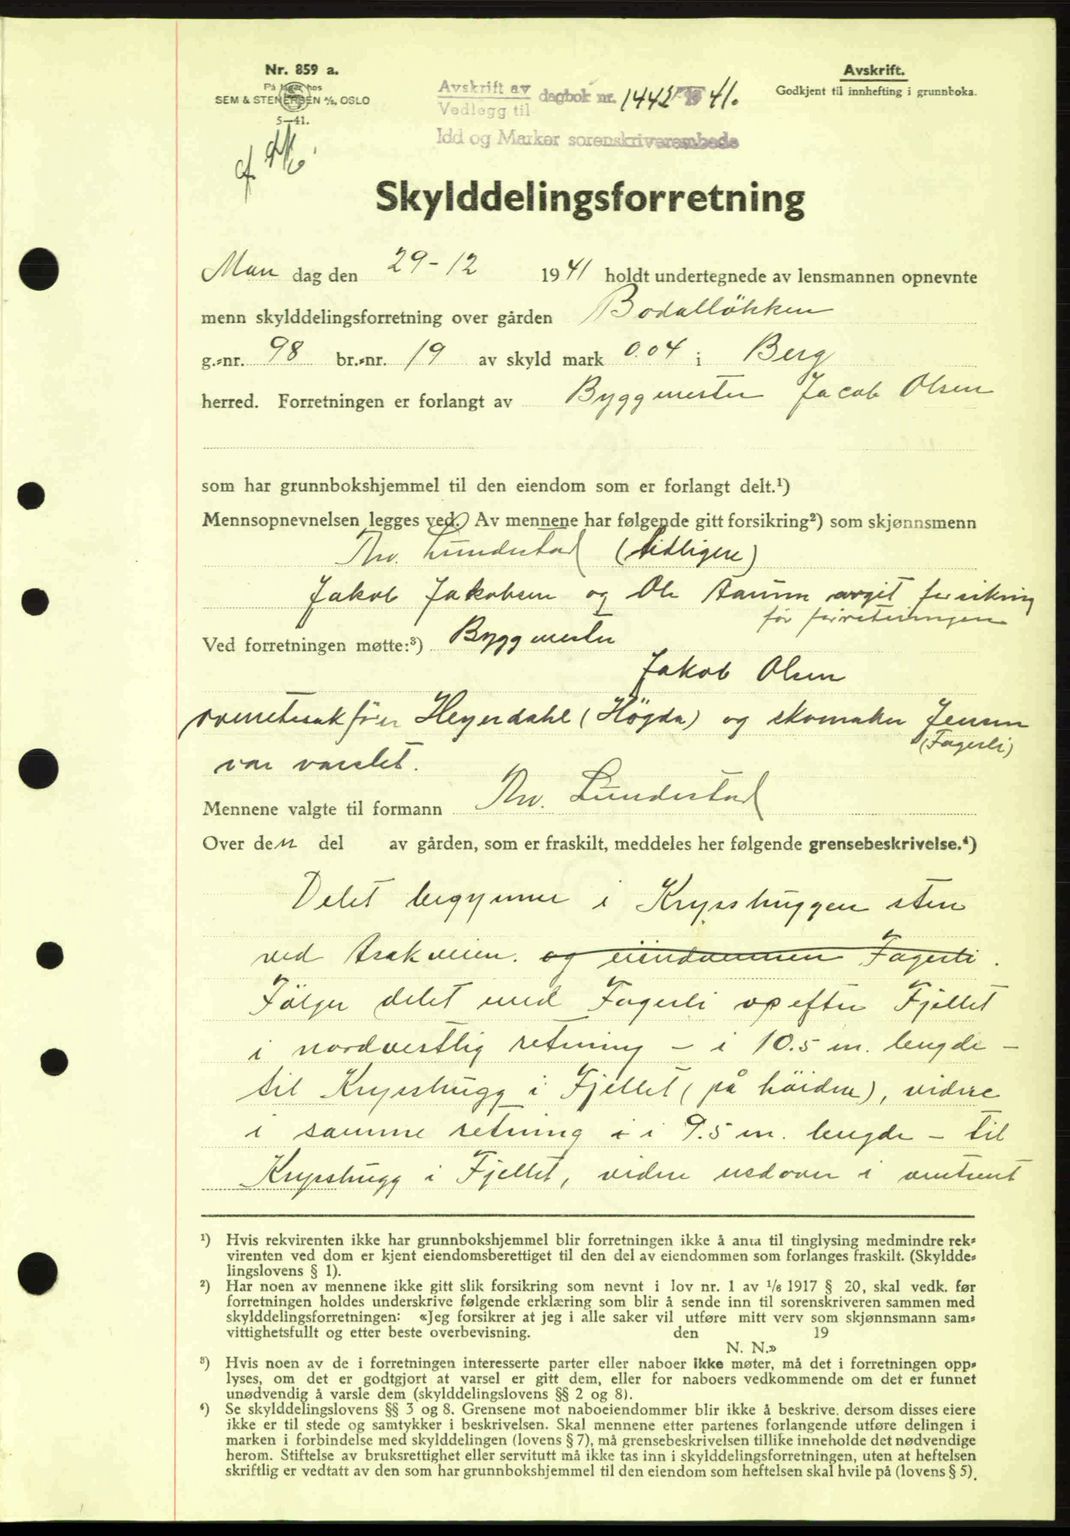 Nr. 859 a.
På lager hos
SEM & STENERSEN A/S, OSLO
5—41.
Avskrift av
Vedlegg til
dagbok nr. 1442/1941.
Idd og Marker sorenskriverembede
Avskrift.
Godkjent til innhefting i grunnboka.
Skylddelingsforretning
Man dag den 29-12 1941 holdt undertegnede av lensmannen opnevnte
menn skylddelingsforretning over gården Bodalløkken
g.-nr. 98 br.-nr. 19 av skyld mark 0.04 i Berg
herred. Forretningen er forlangt av Byggmester Jacob Olsen
som har grunnbokshjemmel til den eiendom som er forlangt delt.¹)
Mennsopnevnelsen legges ved. Av mennene har følgende gitt forsikring²) som skjønnsmenn
Thv. Lundestad (tidligere)
Jakob Jakobsen og Ole Aarum avgit forsikring
før forretningen
Ved forretningen møtte:³) Byggmester
Jakob Olsen
overretssakfører Heyerdahl (Høgda) og skomaker Jensen
(Fagerli)
var varslet.
Mennene valgte til formann Thv. Lundestad
Over den del av gården, som er fraskilt, meddeles her følgende grensebeskrivelse.⁴)
Delet begynner i Krysshuggen sten
ved Asakveien. og eiendommen Fagerli.
Følger delet med Fagerli op efter Fjellet
i nordvestlig retning – i 10.5 m. lengde –
til Krysshugg i Fjellet (på høiden), videre
i samme retning i i 9.5 m. lengde – til
Krysshugg i Fjellet, videre nedover i omtrent
¹) Hvis rekvirenten ikke har grunnbokshjemmel blir forretningen ikke å anta til tinglysing medmindre rek-
virenten ved dom er kjent eiendomsberettiget til den del av eiendommen som forlanges fraskilt. (Skyldde-
lingslovens § 1).
²) Har noen av mennene ikke gitt slik forsikring som nevnt i lov nr. 1 av 1/6 1917 § 20, skal vedk. før
forretningen holdes underskrive følgende erklæring som blir å sende inn til sorenskriveren sammen med
skylddelingsforretningen: «Jeg forsikrer at jeg i alle saker vil utføre mitt verv som skjønnsmann sam-
vittighetsfullt og etter beste overbevisning. den 19
N. N.»
³) Hvis noen av de i forretningen interesserte parter eller naboer ikke møter, må det i forretningen opp-
lyses, om det er godtgjort at varsel er gitt dem, eller for naboers vedkommende om det er funnet
unødvendig å varsle dem (skylddelingslovens §§ 2 og 8).
⁴) Se skylddelingslovens §§ 3 og 8. Grensene mot naboeiendommer blir ikke å beskrive, dersom disses eiere
ikke er til stede og samtykker i beskrivelsen. Skal mennene etter partenes forlangende utføre delingen i
marken i forbindelse med skylddelingen (lovens § 7), må grensebeskrivelsen tillike inneholde det nødvendige
herom. Stiftelse av bruksrettighet eller servitutt må ikke tas inn i skylddelingsforretningen, uten at heftelsen
skriftlig er vedtatt av den som har grunnbokshjemmel til den eiendom som heftelsen skal hvile på (lovens § 5).